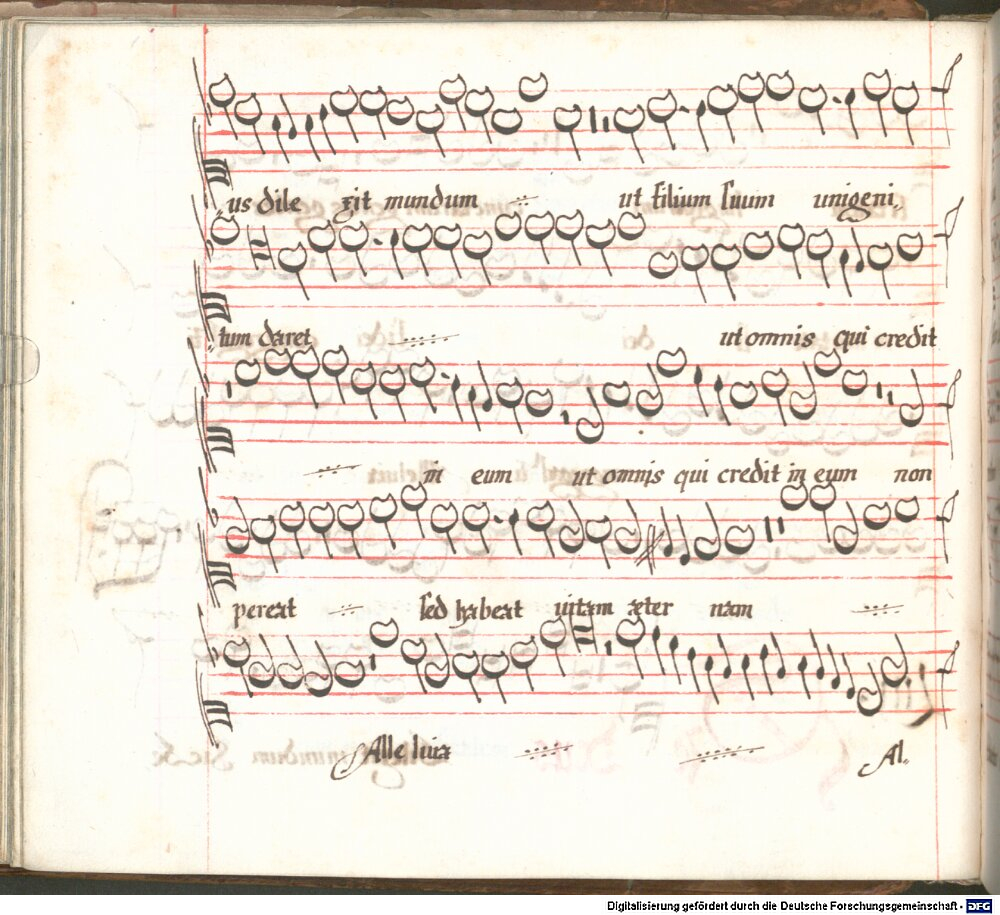 us dile xit mundum ut filium suum unigeni„
„tum daret ut omnis qui credit
in eum ut omnis qui credit in eum non
pereat sed habeat uitam æter nam
Alle luia Al„
Digitalisierung gefördert durch die Deutsche Forschungsgemeinschaft - DFG